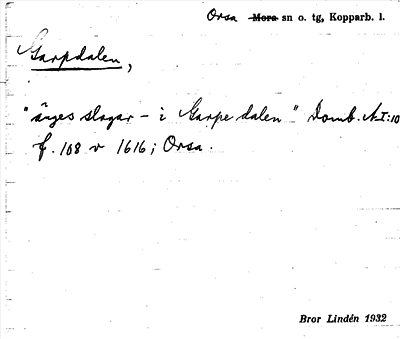 Orsa ~~Mora~~ sn o. tg, Kopparb. l.
Garpdalen,
"ärges slagar - i Garpe dalen" Domb. A.I:10
f. 108 v 1616; Orsa.
Bror Lindén 1932